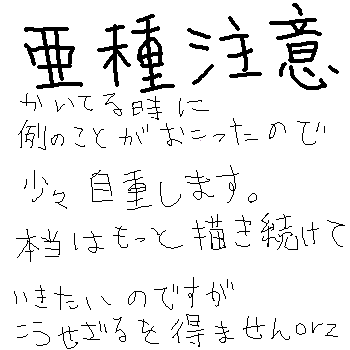 亜種注意
かいてる時に
例のことがおこったので
少々自重します。
本当はもっと描き続けて
いきたいのですが
こうせざるを得ませんorz